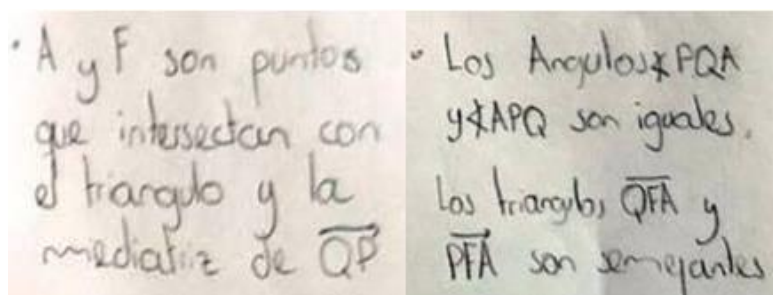 · A y F son puntos
que intersectan con
el triangulo y la
mediatriz de Q͞P
· Los Angulos ∡PQA
y ∡APQ son iguales.
Los triangulos Q͞F͞A y
P͞F͞A son semejantes